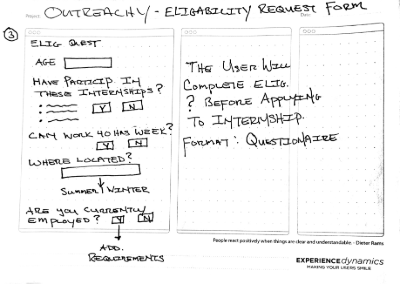 Project: OUTREACHY - ELIGABILITY REQUEST FORM Date:
3
ELIG QUEST
AGE
HAVE PARTICIP IN
THESE INTERNSHIPS?
Y N
CAN WORK 40 HRS WEEK?
Y N
WHERE LOCATED?
SUMMER/WINTER
ARE YOU CURRENTLY
EMPLOYED? Y N
ADD.
REQUIREMENTS
THE USER WILL
COMPLETE ELIG.
? BEFORE APPLYING
TO INTERNSHIP.
FORMAT: QUESTIONAIRE
People react positively when things are clear and understandable. - Dieter Rams
EXPERIENCEdynamics
MAKING YOUR USERS SMILE